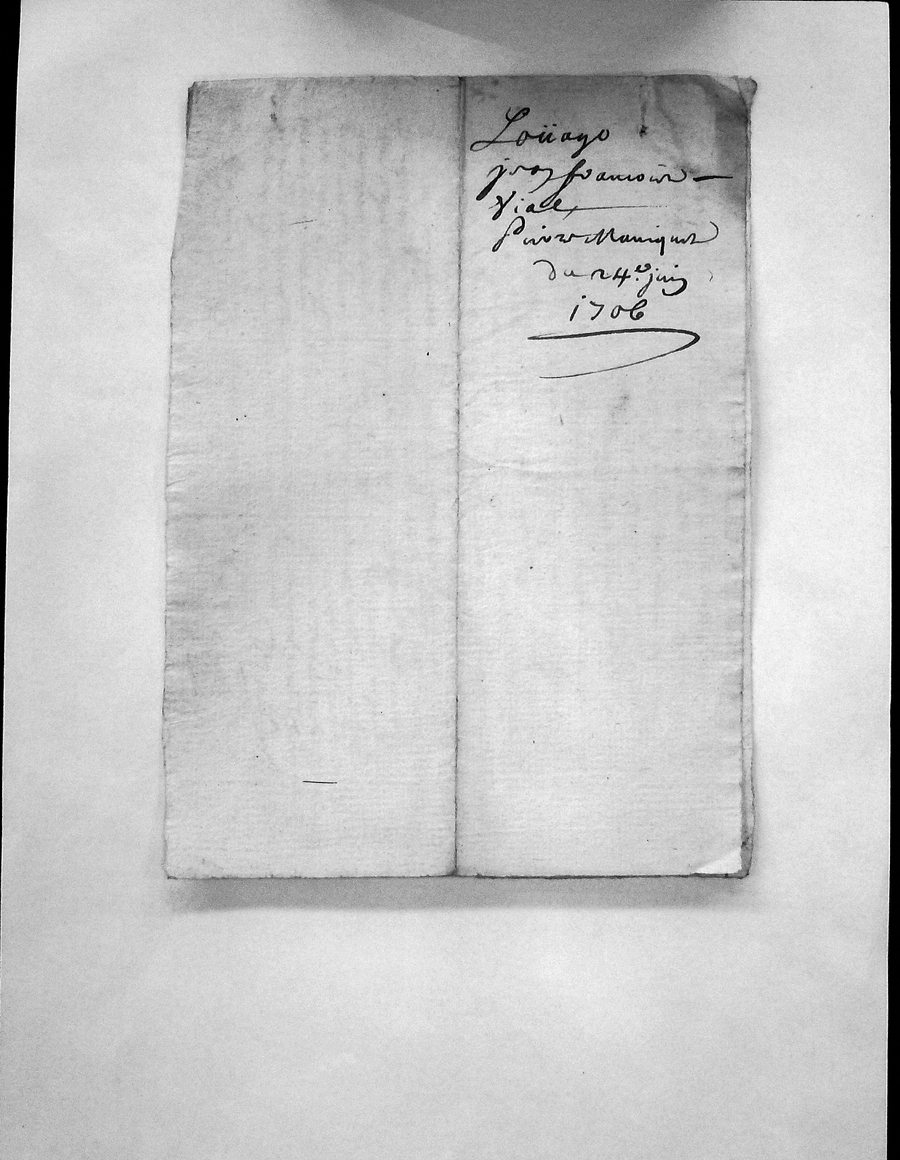 Loüage
jean francoise
Vial
Pierre Maniquet
du 24e. juin
1706